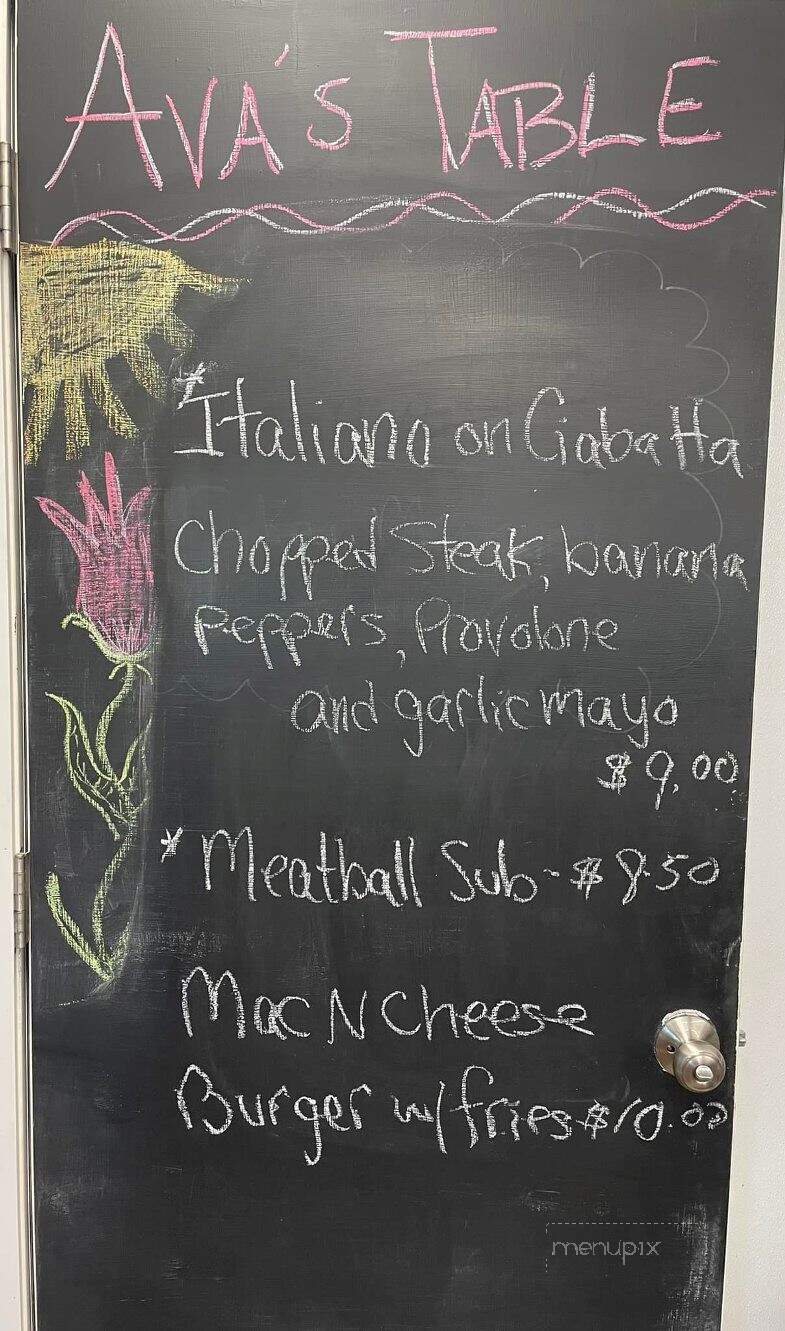 AVA'S TABLE
*Italiano on Ciabatta
Chopped Steak, banana
peppers, Provolone
and garlic mayo
$9.00
*Meatball Sub - $8.50
Mac N Cheese
Burger w/ fries $10.00
menupix